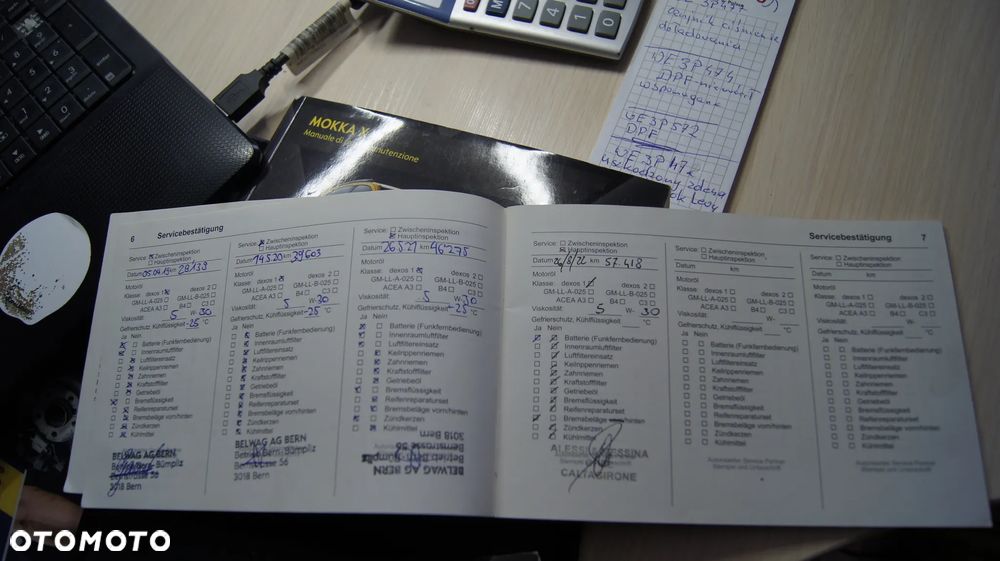 MOKKA X
Manuale di
ciśnienie
doładowania
DPF
6
Servicebestätigung
Service: ☒ Zwischeninspektion
☐ Hauptinspektion
Datum 05.04.19 km
Motoröl
Klasse: dexos 1 ☒ dexos 2 ☐
GM-LL-A-025 ☐ GM-LL-B-025 ☐
ACEA A3 ☐ B4 ☐ C3 ☐
Viskosität: 5 W- 30
Gefrierschutz, Kühlflüssigkeit -25 °C
Ja Nein
Batterie (Funkfernbedienung)
Innenraumluftfilter
Luftfiltereinsatz
Keilrippenriemen
Zahnriemen
Kraftstofffilter
Getriebeöl
Bremsflüssigkeit
Reifenreparaturset
Bremsbeläge vorn/hinten
Zündkerzen
Kühlmittel
BELWAG AG BERN
Betrieb Bern-Bümpliz
Bernstrasse 56
3018 Bern
Service: ☒ Zwischeninspektion
☐ Hauptinspektion
Datum 14.5.20 km 39603
Motoröl
Klasse: dexos 1 ☒ dexos 2 ☐
GM-LL-A-025 ☐ GM-LL-B-025 ☐
ACEA A3 ☐ B4 ☐ C3 ☐
Viskosität: 5 W- 30
Gefrierschutz, Kühlflüssigkeit -25 °C
Ja Nein
Batterie (Funkfernbedienung)
Innenraumluftfilter
Luftfiltereinsatz
Keilrippenriemen
Zahnriemen
Kraftstofffilter
Getriebeöl
Bremsflüssigkeit
Reifenreparaturset
Bremsbeläge vorn/hinten
Zündkerzen
Kühlmittel
BELWAG AG BERN
Bernstrasse 56
3018 Bern
Service: ☐ Zwischeninspektion
☒ Hauptinspektion
Datum 26.5.21 km 46275
Motoröl
Klasse: dexos 1 ☒ dexos 2 ☐
GM-LL-A-025 ☐ GM-LL-B-025 ☐
ACEA A3 ☐ B4 ☐ C3 ☐
Viskosität: 5 W- 30
Gefrierschutz, Kühlflüssigkeit -25 °C
Ja Nein
Batterie (Funkfernbedienung)
Innenraumluftfilter
Luftfiltereinsatz
Keilrippenriemen
Zahnriemen
Kraftstofffilter
Getriebeöl
Bremsflüssigkeit
Reifenreparaturset
Bremsbeläge vorn/hinten
Zündkerzen
Kühlmittel
BELWAG AG BERN
Bernstrasse 56
3018 Bern
Servicebestätigung
7
Service: ☐ Zwischeninspektion
☒ Hauptinspektion
Datum km 57.418
Motoröl
Klasse: dexos 1 ☒ dexos 2 ☐
GM-LL-A-025 ☐ GM-LL-B-025 ☐
ACEA A3 ☐ B4 ☐ C3 ☐
Viskosität: 5 W- 30
Gefrierschutz, Kühlflüssigkeit °C
Ja Nein
Batterie (Funkfernbedienung)
Innenraumluftfilter
Luftfiltereinsatz
Keilrippenriemen
Zahnriemen
Kraftstofffilter
Getriebeöl
Bremsflüssigkeit
Reifenreparaturset
Bremsbeläge vorn/hinten
Zündkerzen
Kühlmittel
CALTAGIRONE
Service: ☐ Zwischeninspektion
☐ Hauptinspektion
Datum km
Motoröl
Klasse: dexos 1 ☐ dexos 2 ☐
GM-LL-A-025 ☐ GM-LL-B-025 ☐
ACEA A3 ☐ B4 ☐ C3 ☐
Viskosität: W-
Gefrierschutz, Kühlflüssigkeit °C
Ja Nein
Batterie (Funkfernbedienung)
Innenraumluftfilter
Luftfiltereinsatz
Keilrippenriemen
Zahnriemen
Kraftstofffilter
Getriebeöl
Bremsflüssigkeit
Reifenreparaturset
Bremsbeläge vorn/hinten
Zündkerzen
Kühlmittel
Autorisierter Service Partner
Stempel und Unterschrift
Service: ☐ Zwischeninspektion
☐ Hauptinspektion
Datum km
Motoröl
Klasse: dexos 1 ☐ dexos 2 ☐
GM-LL-A-025 ☐ GM-LL-B-025 ☐
ACEA A3 ☐ B4 ☐ C3 ☐
Viskosität: W-
Gefrierschutz, Kühlflüssigkeit °C
Ja Nein
Batterie (Funkfernbedienung)
Innenraumluftfilter
Luftfiltereinsatz
Keilrippenriemen
Zahnriemen
Kraftstofffilter
Getriebeöl
Bremsflüssigkeit
Reifenreparaturset
Bremsbeläge vorn/hinten
Zündkerzen
Kühlmittel
Autorisierter Service Partner
Stempel und Unterschrift
OTOMOTO